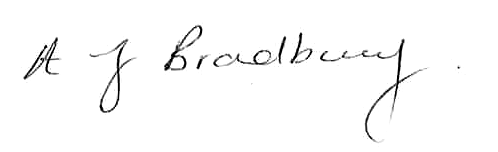 A J Bradbury.